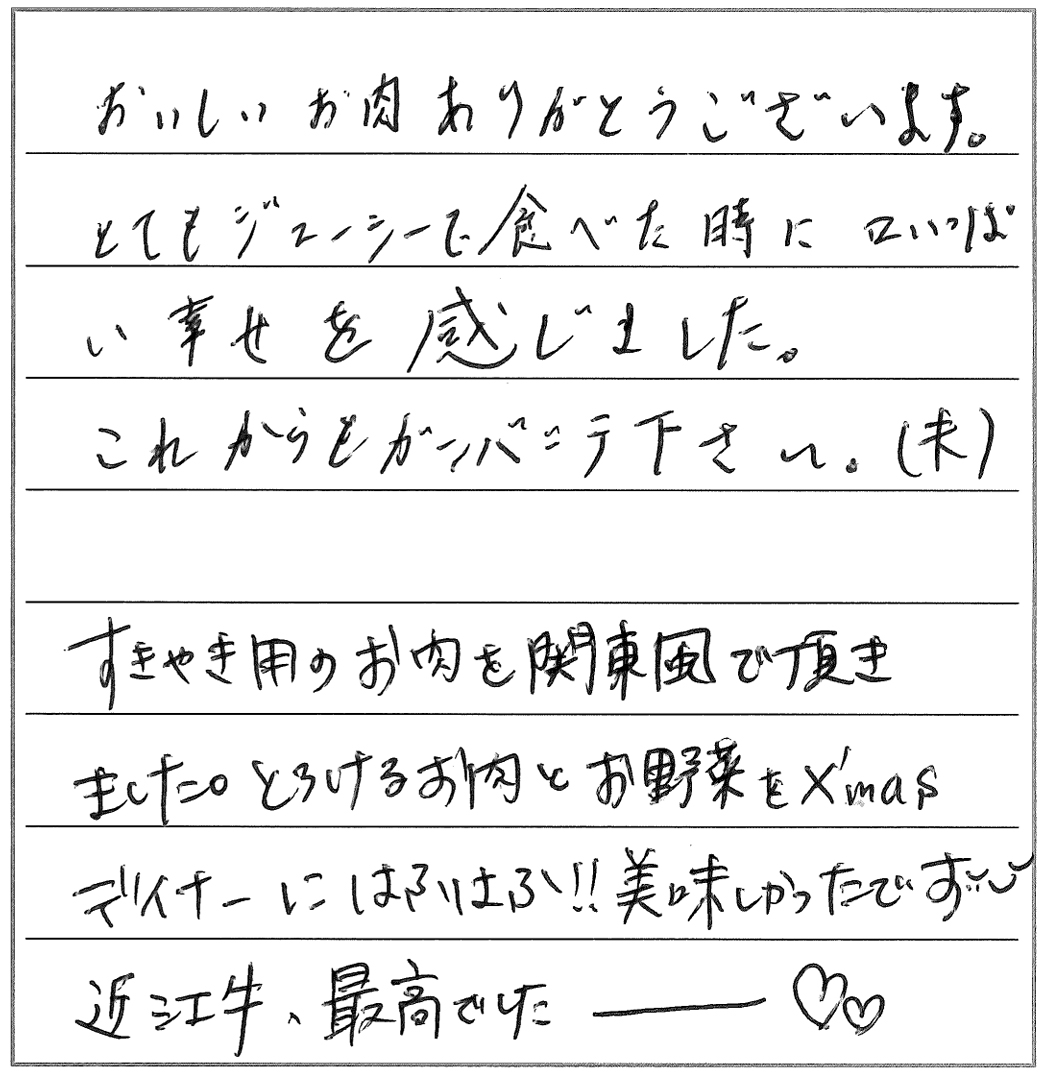 おいしいお肉ありがとうございます。
とてもジューシーで食べた時に口いっぱ
い幸せを感じました。
これからもガンバッテ下さい。(夫)
すきやき用のお肉を関東風で頂き
ました。とろけるお肉とお野菜をX'mas
ディナーにはふはふ!!美味しかったです
近江牛、最高でした――♡♡